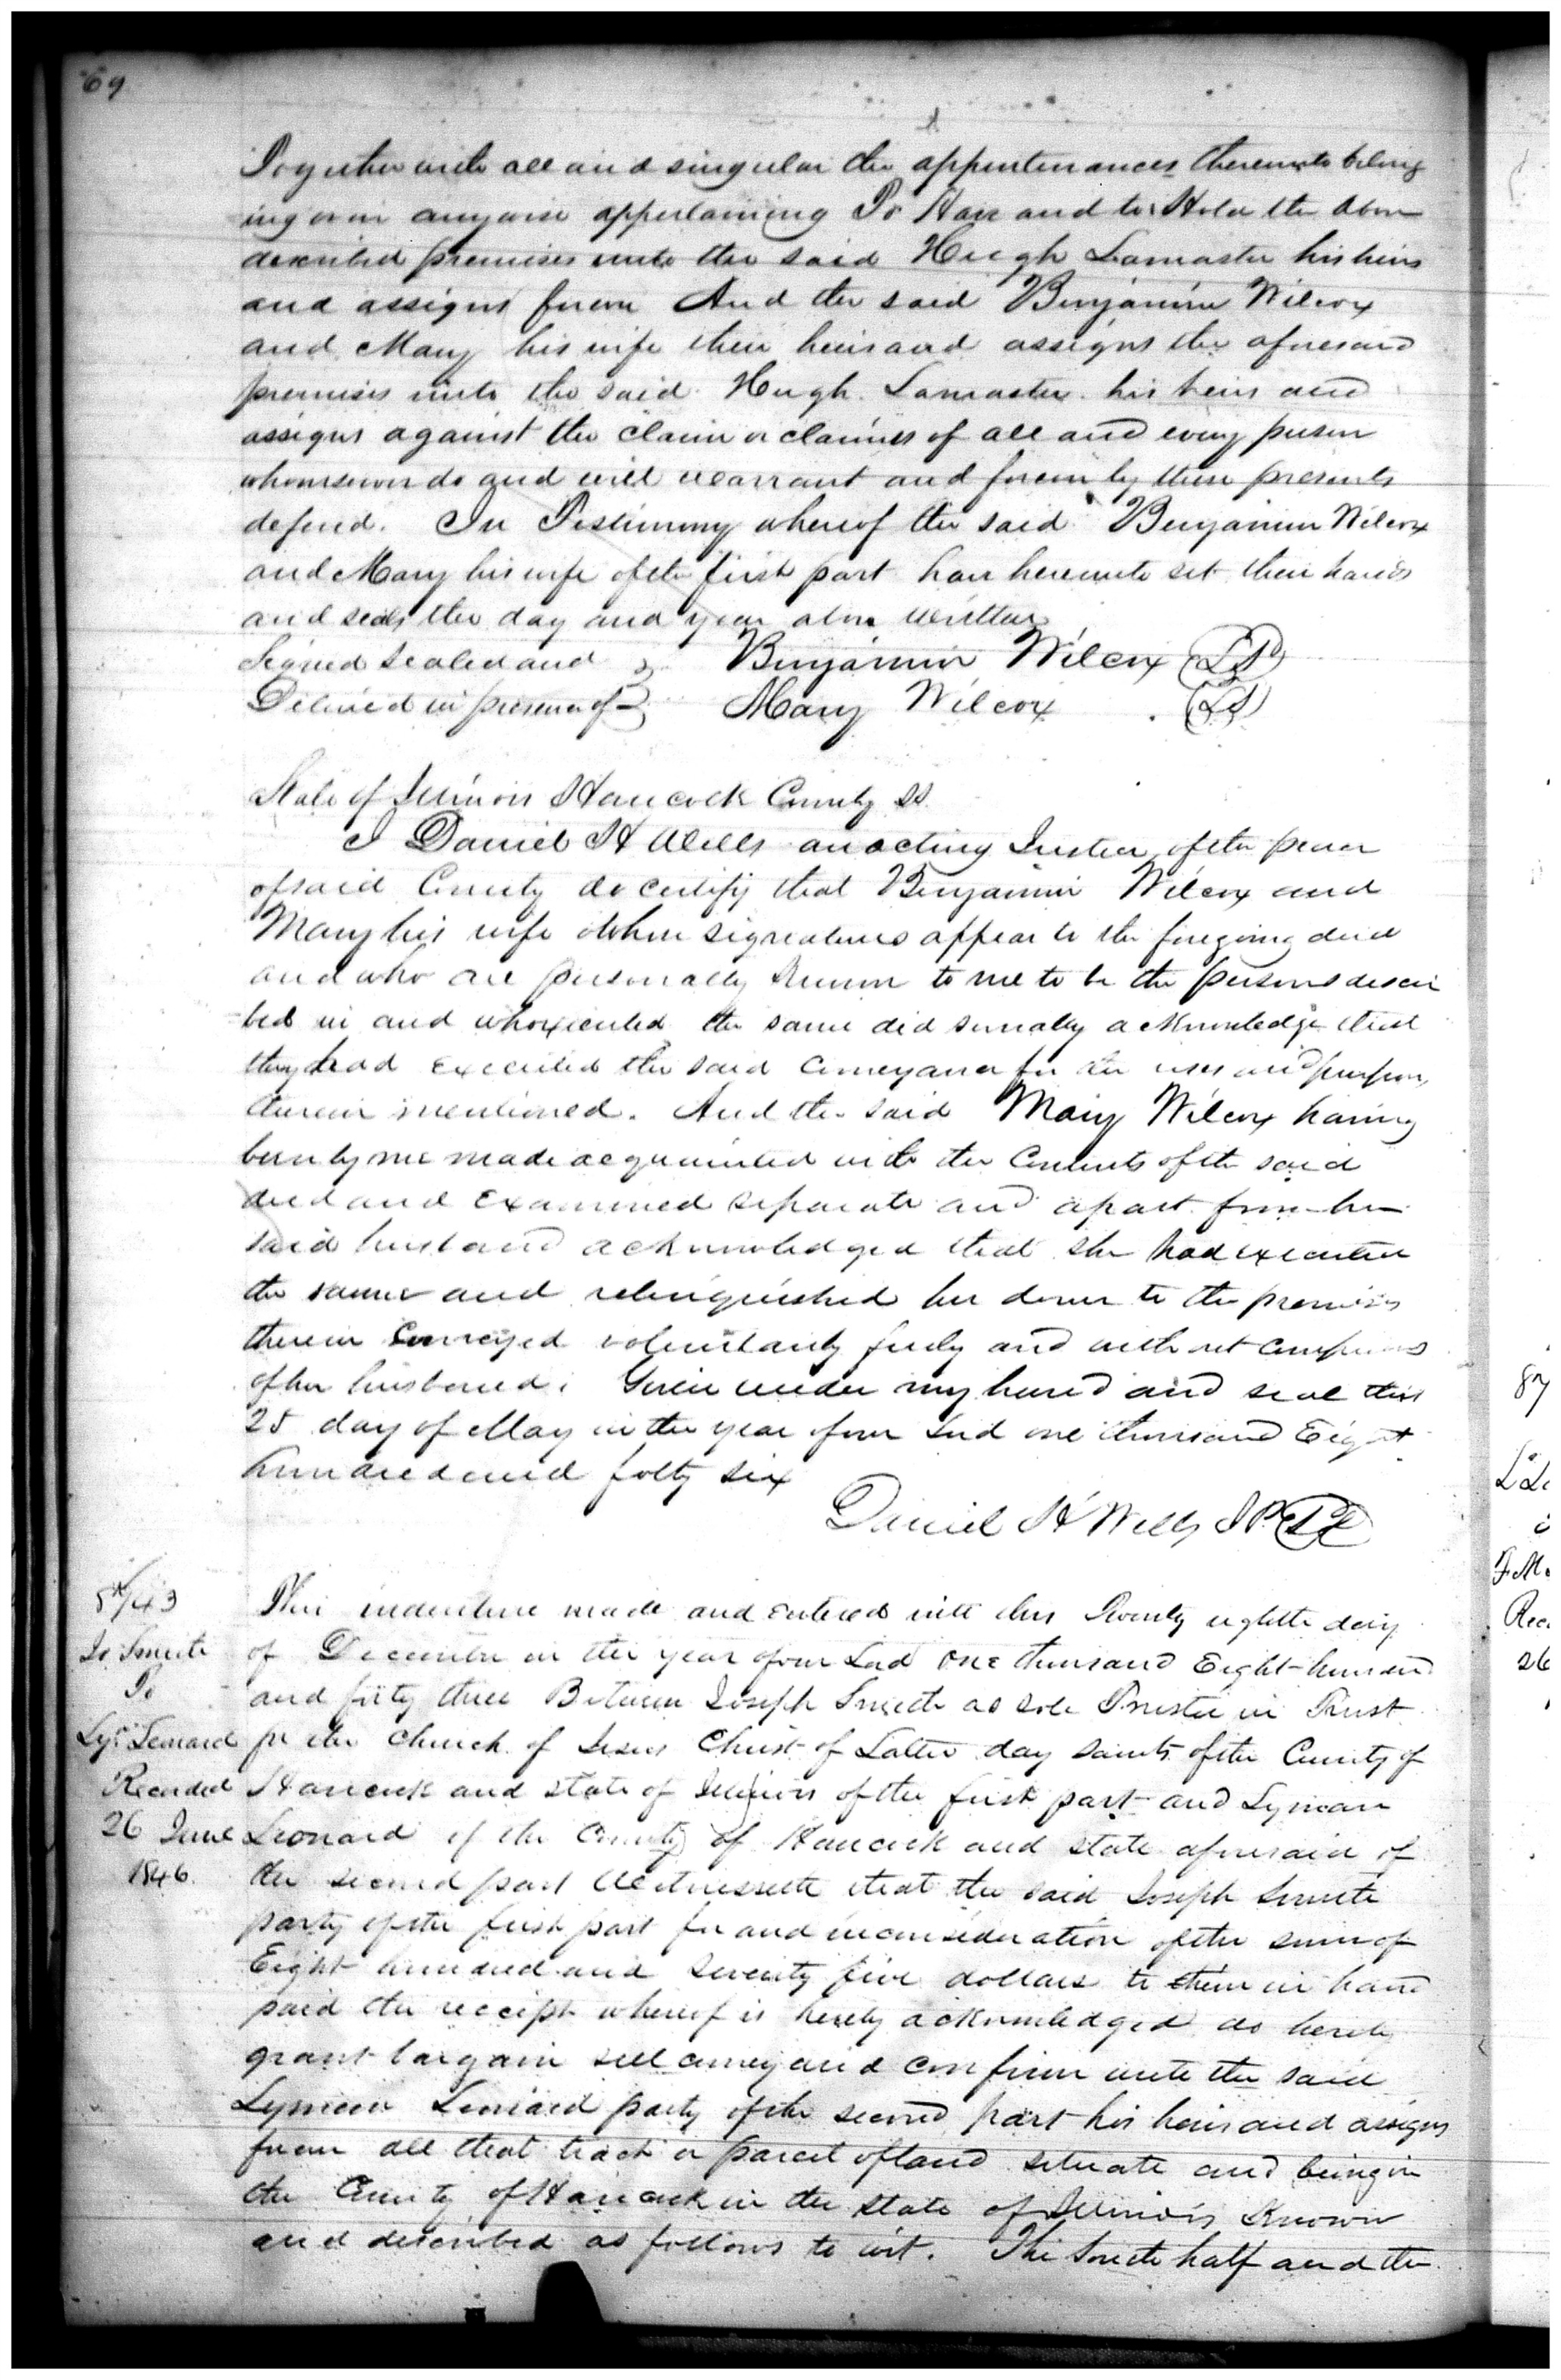 69
Together with all and singular the appurtenances thereunto belong
ing or in anywise appertaining To Have and to Hold the above
described premises unto the said Hugh Lamaster his heirs
and assigns forever And the said Benjamin Wilcox
and Mary his wife their heirs and assigns the aforesaid
premises unto the said Hugh Lamaster his heirs and
assigns against the claim or claims of all and every person
whomsoever do and will warrant and forever by these presents
defend. In Testimony whereof the said Benjamin Wilcox
and Mary his wife of the first part have hereunto set their hands
and seals the day and year above written
Signed Sealed and Benjamin Wilcox (LS)
Delivered in presence of Mary Wilcox (LS)
State of Illinois Hancock County SS
I Daniel H Wells an acting Justice of the peace
of said County do certify that Benjamin Wilcox and
Mary his wife whose signatures appear to the foregoing deed
and who are personally known to me to be the persons descri
bed in and who executed the same did severally acknowledge that
they had executed the said conveyance for the uses and purposes
therein mentioned. And the said Mary Wilcox having
been by me made acquainted with the Contents of the said
deed and Examined separate and apart from her
said husband acknowledged that she had executed
the same and relinquished her dower to the premises
therein Conveyed voluntarily freely and without compulsion
of her husband. Given under my hand and seal this
25 day of May in the year of our Lord one thousand Eight
hundred and forty six
Daniel H Wells J P (LS)
5743
Js Smith
To
Ly Leonard
Recorded
26 June
1846.
This indenture made and entered into this Twenty eighth day
of December in the year of our Lord One thousand Eight hundred
and forty three Between Joseph Smith as sole Trustee in Trust
for the Church of Jesus Christ of Latter day saints of the County of
Hancock and state of Illinois of the first part and Lyman
Leonard of the County of Hancock and state aforesaid of
the second part Witnesseth that the said Joseph Smith
party of the first part for and in consideration of the sum of
Eight hundred and seventy five dollars to them in hand
paid the receipt whereof is hereby acknowledged do hereby
grant bargain sell convey and confirm unto the said
Lyman Leonard party of the second part his heirs and assigns
forever all that track or parcel of land situate and being in
the County of Hancock in the State of Illinois Known
and described as follows to wit. The South half and the
87
Rec
26